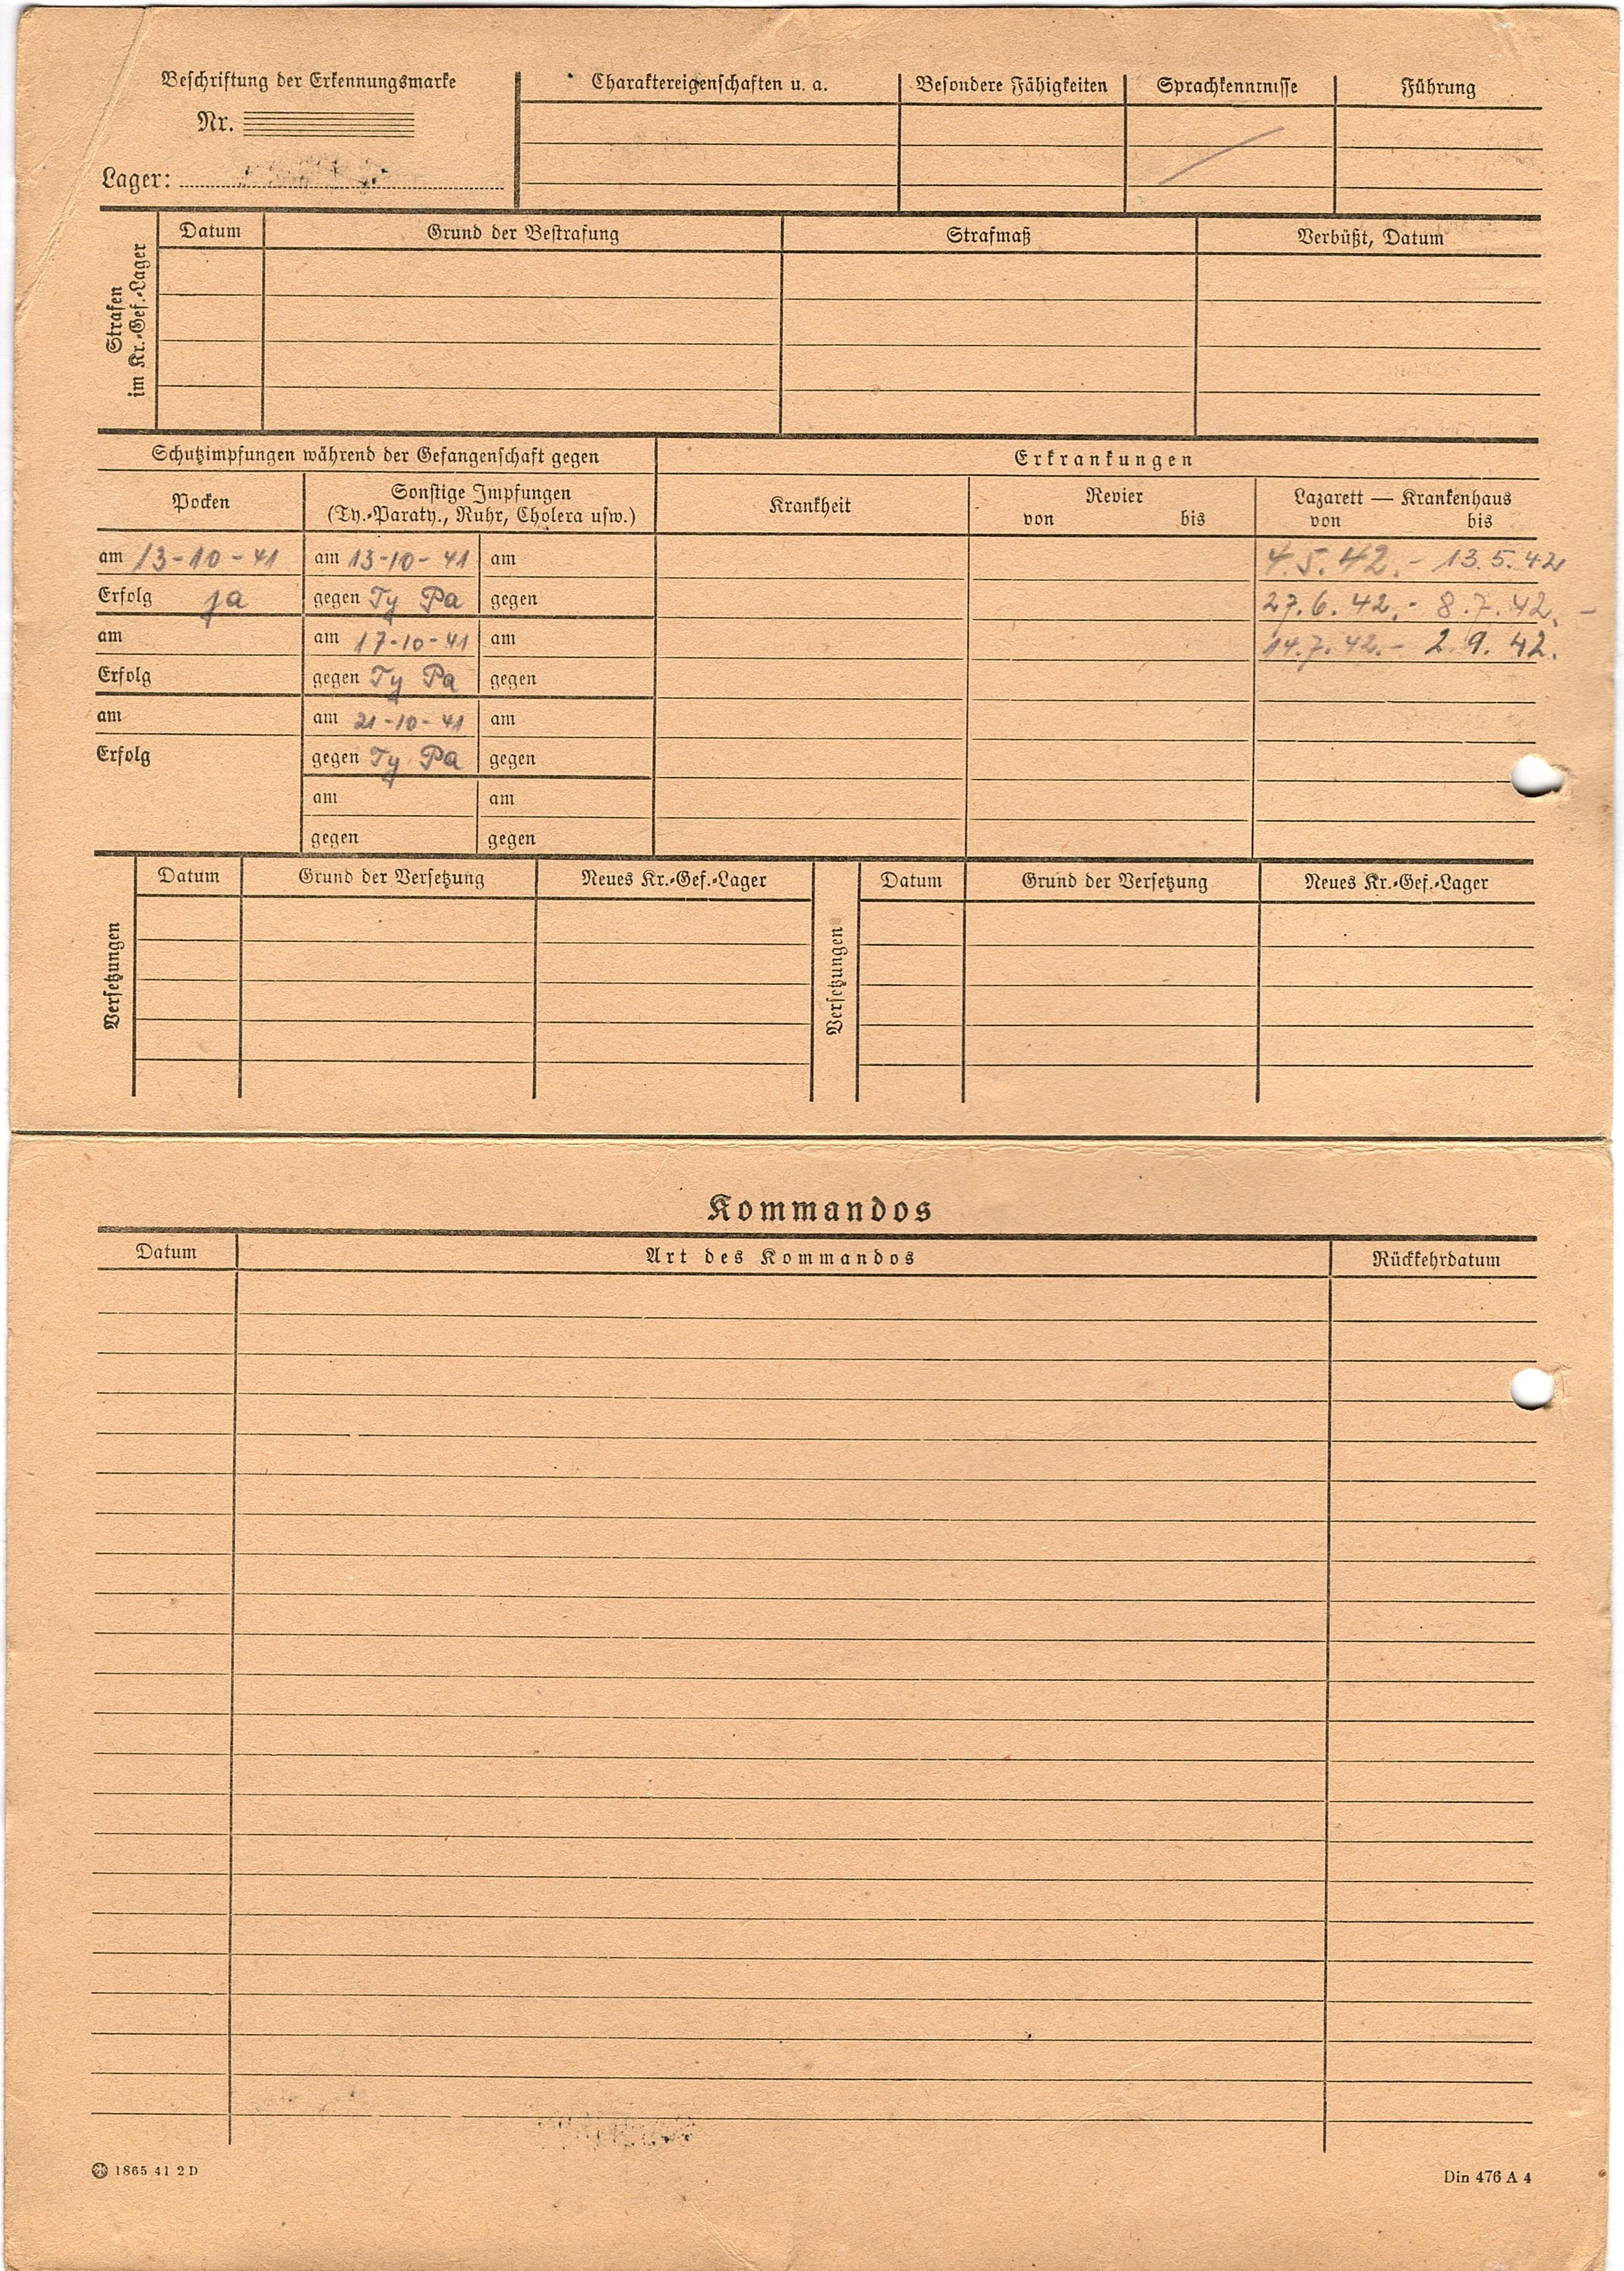 Beschriftung der Erkennungsmarke
Nr.
Lager:
Charaktereigenschaften u. a.
Besondere Fähigkeiten
Sprachkenntnisse
Führung
Strafen
im Kr.-Gef.-Lager
Datum
Grund der Bestrafung
Strafmaß
Verbüßt, Datum
Schutzimpfungen während der Gefangenschaft gegen
Erkrankungen
Pocken
Sonstige Impfungen
(Ty.-Paraty., Ruhr, Cholera usw.)
Krankheit
Revier
von bis
Lazarett — Krankenhaus
von bis
am 13-10-41 am 13-10-41 am 4.5.42.- 13.5.42
Erfolg ja gegen Ty Pa gegen 27.6.42.- 8.7.42.-
am am 17-10-41 am 14.7.42.- 2.9.42.
Erfolg gegen Ty Pa gegen
am am 21-10-41 am
Erfolg gegen Ty Pa gegen
am am
gegen gegen
Versetzungen
Datum
Grund der Versetzung
Neues Kr.-Gef.-Lager
Versetzungen
Datum
Grund der Versetzung
Neues Kr.-Gef.-Lager
Kommandos
Datum
Art des Kommandos
Rückkehrdatum
1865 41 2 D
Din 476 A 4